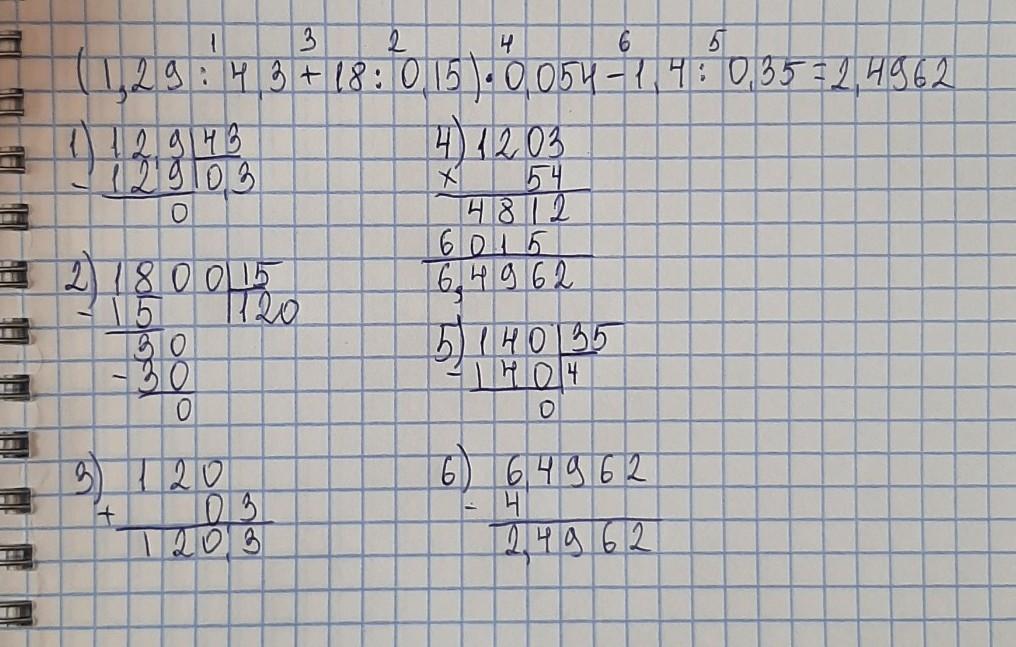 1 3 2 4 6 5
(1,29 : 4,3 + 18 : 0,15) · 0,054 - 1,4 : 0,35 = 2,4962
1) 12,9 | 43
- 129 | 0,3
0
2) 1800 | 15
- 15 | 120
30
- 30
0
3) 120
+ 0 3
120,3
4) 1203
x 54
4812
6015
6,4962
5) 140 | 35
- 140 | 4
0
6) 6,4962
- 4
2,4962